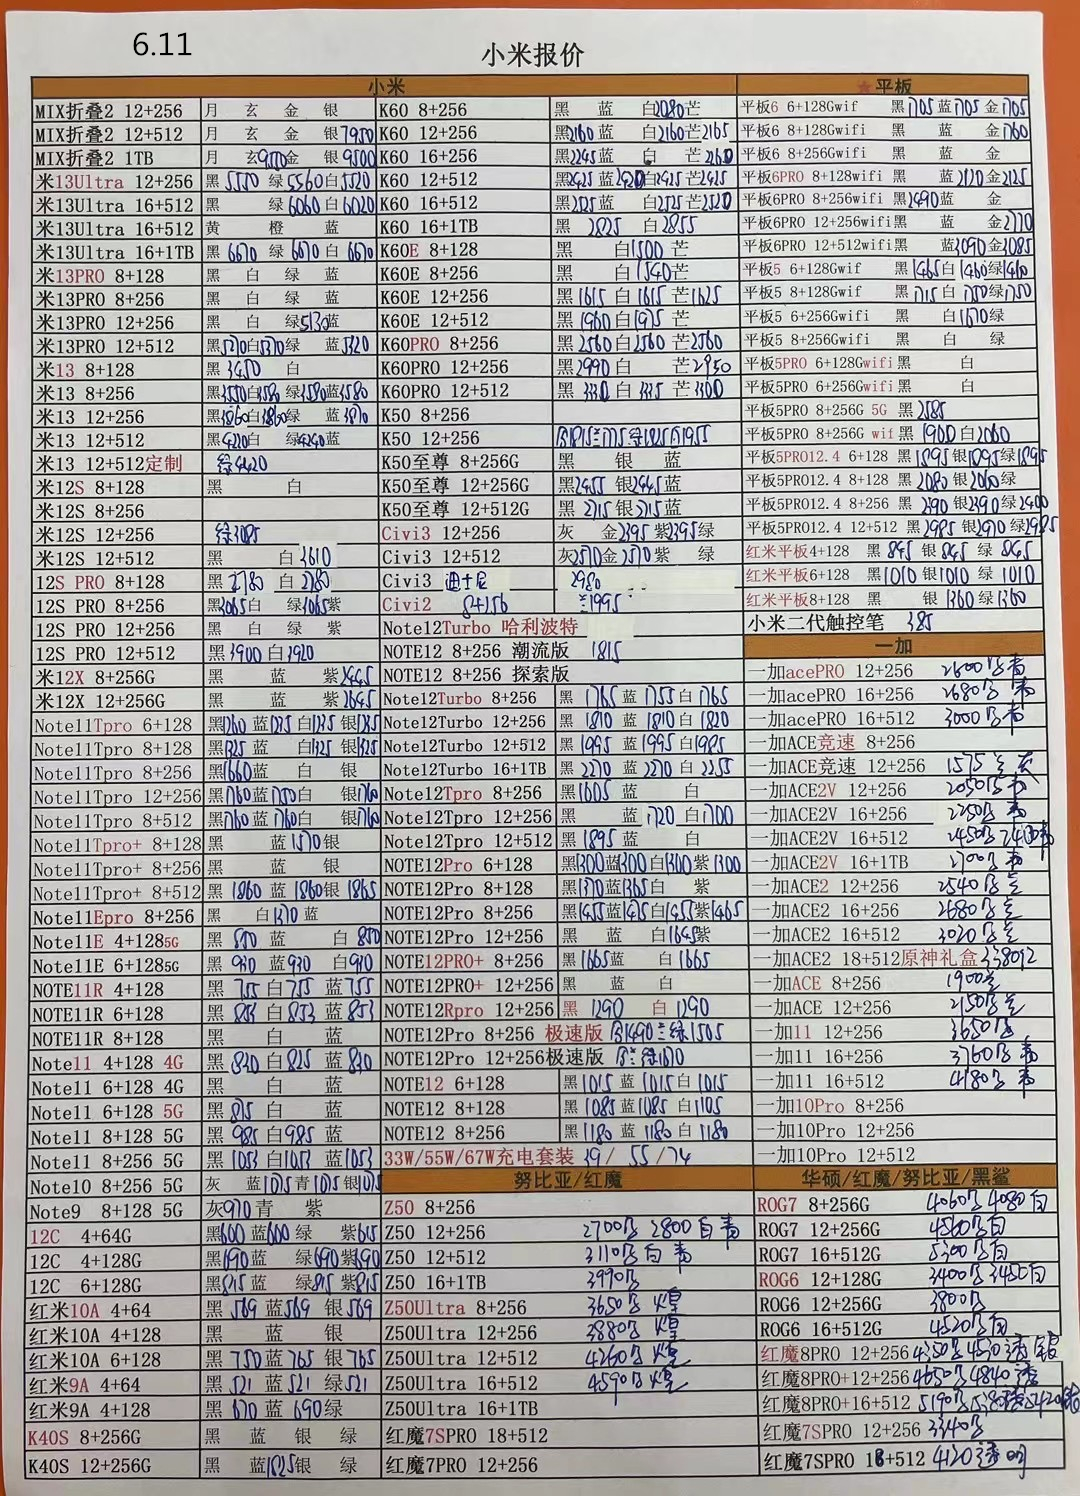 6.11
小米报价
小米
MIX折叠2 12+256 月 玄 金 银
MIX折叠2 12+512 月 玄 金 银7950
MIX折叠2 1TB 月 玄 金 银9500
米13Ultra 12+256 黑5550 绿5560白5520
米13Ultra 16+512 黑 绿6060白6020
米13Ultra 16+512 黄 橙 蓝
米13Ultra 16+1TB 黑6670 绿6670白6670
米13PRO 8+128 黑 白 绿 蓝
米13PRO 8+256 黑 白 绿 蓝
米13PRO 12+256 黑 白 绿5130蓝
米13PRO 12+512 黑5370白5370绿 蓝5320
米13 8+128 黑3450 白
米13 8+256 黑 白 绿 蓝3580
米13 12+256 黑3860白3860绿 蓝3870
米13 12+512 黑4220白 绿4240蓝
米13 12+512定制 绿4420
米12S 8+128 黑 白
米12S 8+256
米12S 12+256 绿3085
米12S 12+512 黑 白3610
12S PRO 8+128 黑2780 白2780
12S PRO 8+256 黑3065白 绿3065紫
12S PRO 12+256 黑 白 绿 紫
12S PRO 12+512 黑3900白3920
米12X 8+256G 黑 蓝 紫2445
米12X 12+256G 黑 蓝 紫2645
Note11Tpro 6+128 黑1260 蓝 白 银
Note11Tpro 8+128 黑1325 蓝 白1325 银1325
Note11Tpro 8+256 黑1660蓝 白 银
Note11Tpro 12+256 黑1760蓝1750白 银1760
Note11Tpro 8+512 黑1760蓝1760白 银1760
Note11Tpro+ 8+128 黑 蓝1570银
Note11Tpro+ 8+256 黑 蓝 银
Note11Tpro+ 8+512 黑1860 蓝1860银1865
Note11Epro 8+256 黑 白1370蓝
Note11E 4+1285G 黑850 蓝 白850
Note11E 6+1285G 黑930 蓝930 白930
NOTE11R 4+128 黑755白755 蓝755
NOTE11R 6+128 黑853白853 蓝853
NOTE11R 8+128 黑 白 蓝
Note11 4+128 4G 黑830白825 蓝830
Note11 6+128 4G 黑 白 蓝
Note11 6+128 5G 黑875 白 蓝
Note11 8+128 5G 黑985白985 蓝
Note11 8+256 5G 黑1053白1053 蓝1053
Note10 8+256 5G 灰 蓝1075青1075银1075
Note9 8+128 5G 灰970青 紫
12C 4+64G 黑600蓝600绿 紫615
12C 4+128G 黑690蓝 绿690紫690
12C 6+128G 黑815蓝 绿815紫815
红米10A 4+64 黑569蓝569 银569
红米10A 4+128 黑 蓝 银
红米10A 6+128 黑750蓝765 银765
红米9A 4+64 黑521蓝521 绿521
红米9A 4+128 黑670蓝690绿
K40S 8+256G 黑 蓝 银 绿
K40S 12+256G 黑 蓝1825银 绿
K60 8+256 黑 蓝 白2080芒
K60 12+256 黑2160蓝 白2160芒2165
K60 16+256 黑2245蓝 白 芒2260
K60 12+512 黑2425蓝2420白2425芒2425
K60 16+512 黑2525蓝 白2525芒2520
K60 16+1TB 黑2825 白2855
K60E 8+128 黑 白1500芒
K60E 8+256 黑 白1540芒
K60E 12+256 黑1615白1615芒1625
K60E 12+512 黑1960白1975芒
K60PRO 8+256 黑2560白2560芒2560
K60PRO 12+256 黑2990白 芒2950
K60PRO 12+512 黑3330白3335芒3300
K50 8+256
K50 12+256
K50至尊 8+256G 黑 银 蓝
K50至尊 12+256G 黑2455 银2445蓝
K50至尊 12+512G 黑2715银2715蓝
Civi3 12+256 灰 金2395紫2395绿
Civi3 12+512 灰2570金2570紫 绿
Civi3 迪士尼 2980
Civi2 8+256 兰1995
Note12Turbo 哈利波特
NOTE12 8+256 潮流版 1815
NOTE12 8+256 探索版
Note12Turbo 8+256 黑1765蓝1755白1765
Note12Turbo 12+256 黑1810蓝1810白1820
Note12Turbo 12+512 黑1995蓝1995白1985
Note12Turbo 16+1TB 黑2270蓝2270白2255
Note12Tpro 8+256 黑1605蓝 白
Note12Tpro 12+256 黑 蓝1720白1700
Note12Tpro 12+512 黑1895蓝 白
NOTE12Pro 6+128 黑1300蓝1300白1300紫1300
NOTE12Pro 8+128 黑1370蓝1365白 紫
NOTE12Pro 8+256 黑1455蓝1475白1455紫1465
NOTE12Pro 12+256 黑 蓝 白1645紫
NOTE12PRO+ 8+256 黑1665蓝 白1665
NOTE12PRO+ 12+256 黑 蓝 白
NOTE12Rpro 12+256 黑1290 白1290
NOTE12Pro 8+256 极速版 白1490兰绿1505
NOTE12Pro 12+256极速版 白兰绿1670
NOTE12 6+128 黑1015蓝1015白1015
NOTE12 8+128 黑1085蓝1085白1105
NOTE12 8+256 黑1180蓝1180白1180
33W/55W/67W充电套装 39/ 55/74
努比亚/红魔
Z50 8+256
Z50 12+256 2700 2800白青
Z50 12+512 3110 白青
Z50 16+1TB 3990
Z50Ultra 8+256 3650 煌
Z50Ultra 12+256 3880 煌
Z50Ultra 12+512 4260 煌
Z50Ultra 16+512 4590 煌
Z50Ultra 16+1TB
红魔7SPRO 18+512
红魔7PRO 12+256
★平板
平板6 6+128Gwif 黑1705蓝1705金1705
平板6 8+128Gwifi 黑 蓝 金1760
平板6 8+256Gwifi 黑 蓝 金
平板6PRO 8+128wifi 黑 蓝2120金2125
平板6PRO 8+256wifi 黑2490蓝 金
平板6PRO 12+256wifi 黑 蓝 金2770
平板6PRO 12+512wifi 黑 蓝3090金3085
平板5 6+128Gwif 黑1465白1460绿1460
平板5 8+128Gwif 黑1715白1750绿1750
平板5 6+256Gwifi 黑 白1670绿
平板5 8+256Gwifi 黑 白 绿
平板5PRO 6+128Gwifi 黑 白
平板5PRO 6+256Gwifi 黑 白
平板5PRO 8+256G 5G 黑2585
平板5PRO 8+256G wif 黑1900白2060
平板5PRO12.4 6+128 黑1895银1895绿1895
平板5PRO12.4 8+128 黑2080银2060绿
平板5PRO12.4 8+256 黑2390银2390绿2400
平板5PRO12.4 12+512 黑2985银2970绿2985
红米平板4+128 黑845银845 绿845
红米平板6+128 黑1010银1010 绿1010
红米平板8+128 黑 银1360绿1360
小米二代触控笔 385
一加
一加acePRO 12+256 2600
一加acePRO 16+256 2680
一加acePRO 16+512 3000
一加ACE竞速 8+256
一加ACE竞速 12+256 1575
一加ACE2V 12+256 2050
一加ACE2V 16+256 2250
一加ACE2V 16+512 2450
一加ACE2V 16+1TB 2700
一加ACE2 12+256 2540
一加ACE2 16+256 2680
一加ACE2 16+512 3020
一加ACE2 18+512原神礼盒 3380红
一加ACE 8+256 1900
一加ACE 12+256 2150
一加11 12+256 3650
一加11 16+256 3760
一加11 16+512 4180
一加10Pro 8+256
一加10Pro 12+256
一加10Pro 12+512
华硕/红魔/努比亚/黑鲨
ROG7 8+256G 4060 4080白
ROG7 12+256G 4560 白
ROG7 16+512G 5300 白
ROG6 12+128G 3400 3450白
ROG6 12+256G 3800
ROG6 16+512G 4520 白
红魔8PRO 12+256 4350 4530透银
红魔8PRO+12+256 4650 4840透
红魔8PRO+16+512 5190
红魔7SPRO 12+256 3340
红魔7SPRO 18+512 4120透明